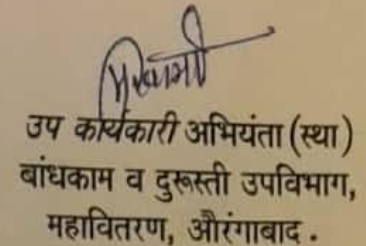 उप कार्यकारी अभियंता (स्था)
बांधकाम व दुरूस्ती उपविभाग,
महावितरण, औरंगाबाद.